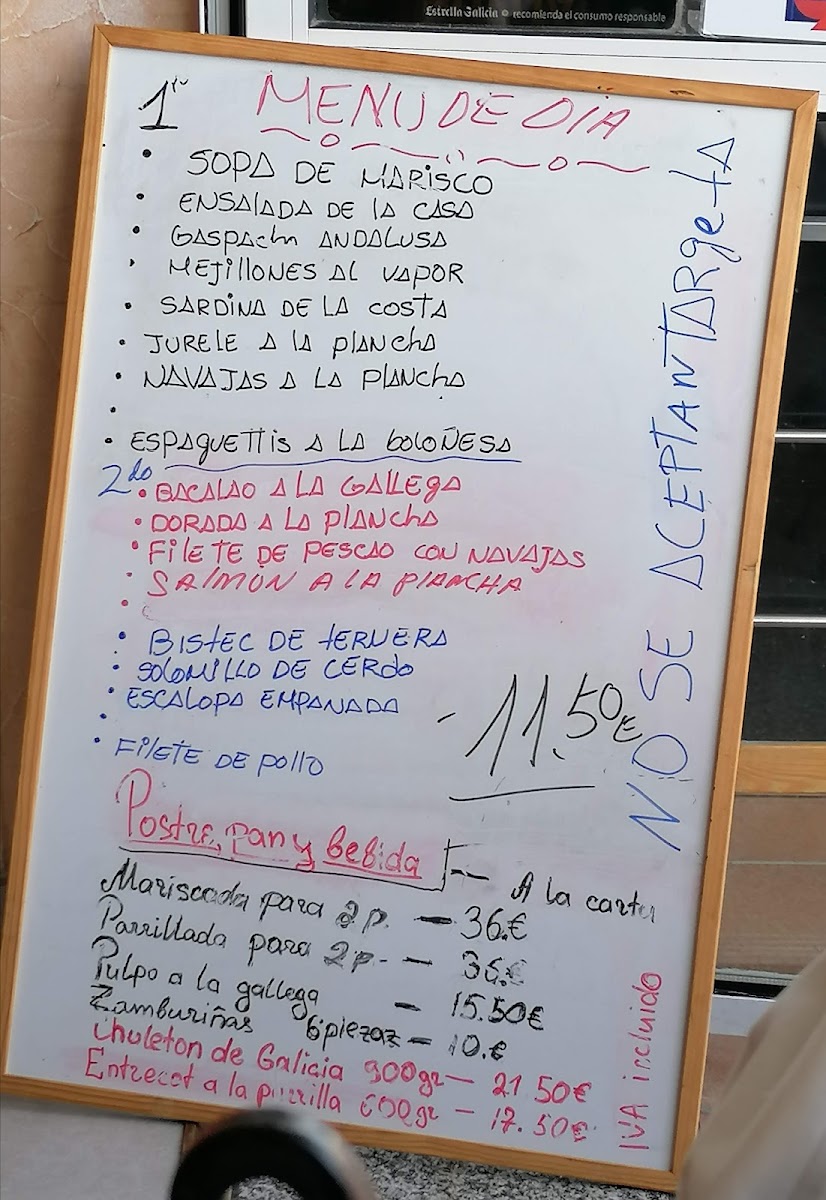 Estrella Galicia recomienda el consumo responsable
1er MENU DE DIA
• SOPA DE MARISCO
• ENSALADA DE LA CASA
• GASPACHO ANDALUSA
• MEJILLONES AL VAPOR
• SARDINA DE LA COSTA
• JURELE A LA PLANCHA
• NAVAJAS A LA PLANCHA
• ESPAGUETTIS A LA BOLOÑESA
2do • BACALAO A LA GALLEGA
• DORADA A LA PLANCHA
• FILETE DE PESCAO CON NAVAJAS
• SALMON A LA PLANCHA
• BISTEC DE TERNERA
• SOLOMILLO DE CERDO
• ESCALOPA EMPANADA
- 11.50€
• FILETE DE POLLO
Postre, pan y bebida
A la carta
Mariscada para 2 p. — 36.€
Parrillada para 2 p. — 36.€
Pulpo a la gallega — 15.50€
Zamburiñas 6 piezaz — 10.€
Chuleton de Galicia 900gr — 21 50€
Entrecot a la parrilla 600gr — 17.50€
NO SE ACEPTAN TARGETA
IVA incluido